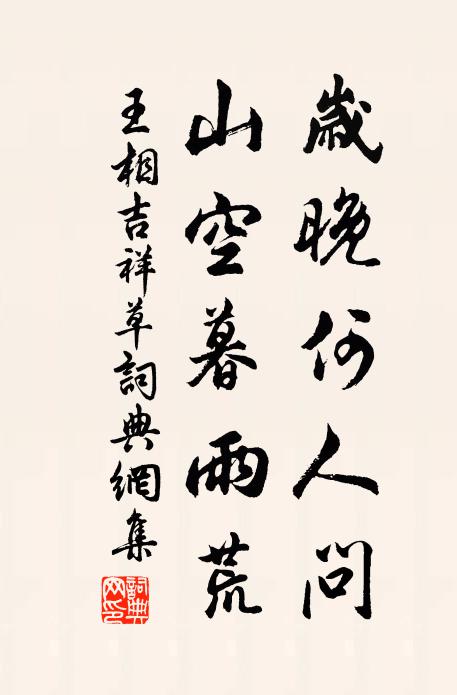 歲晚何人問
山空暮雨荒
王相吉祥草詞典網集
詞典網印